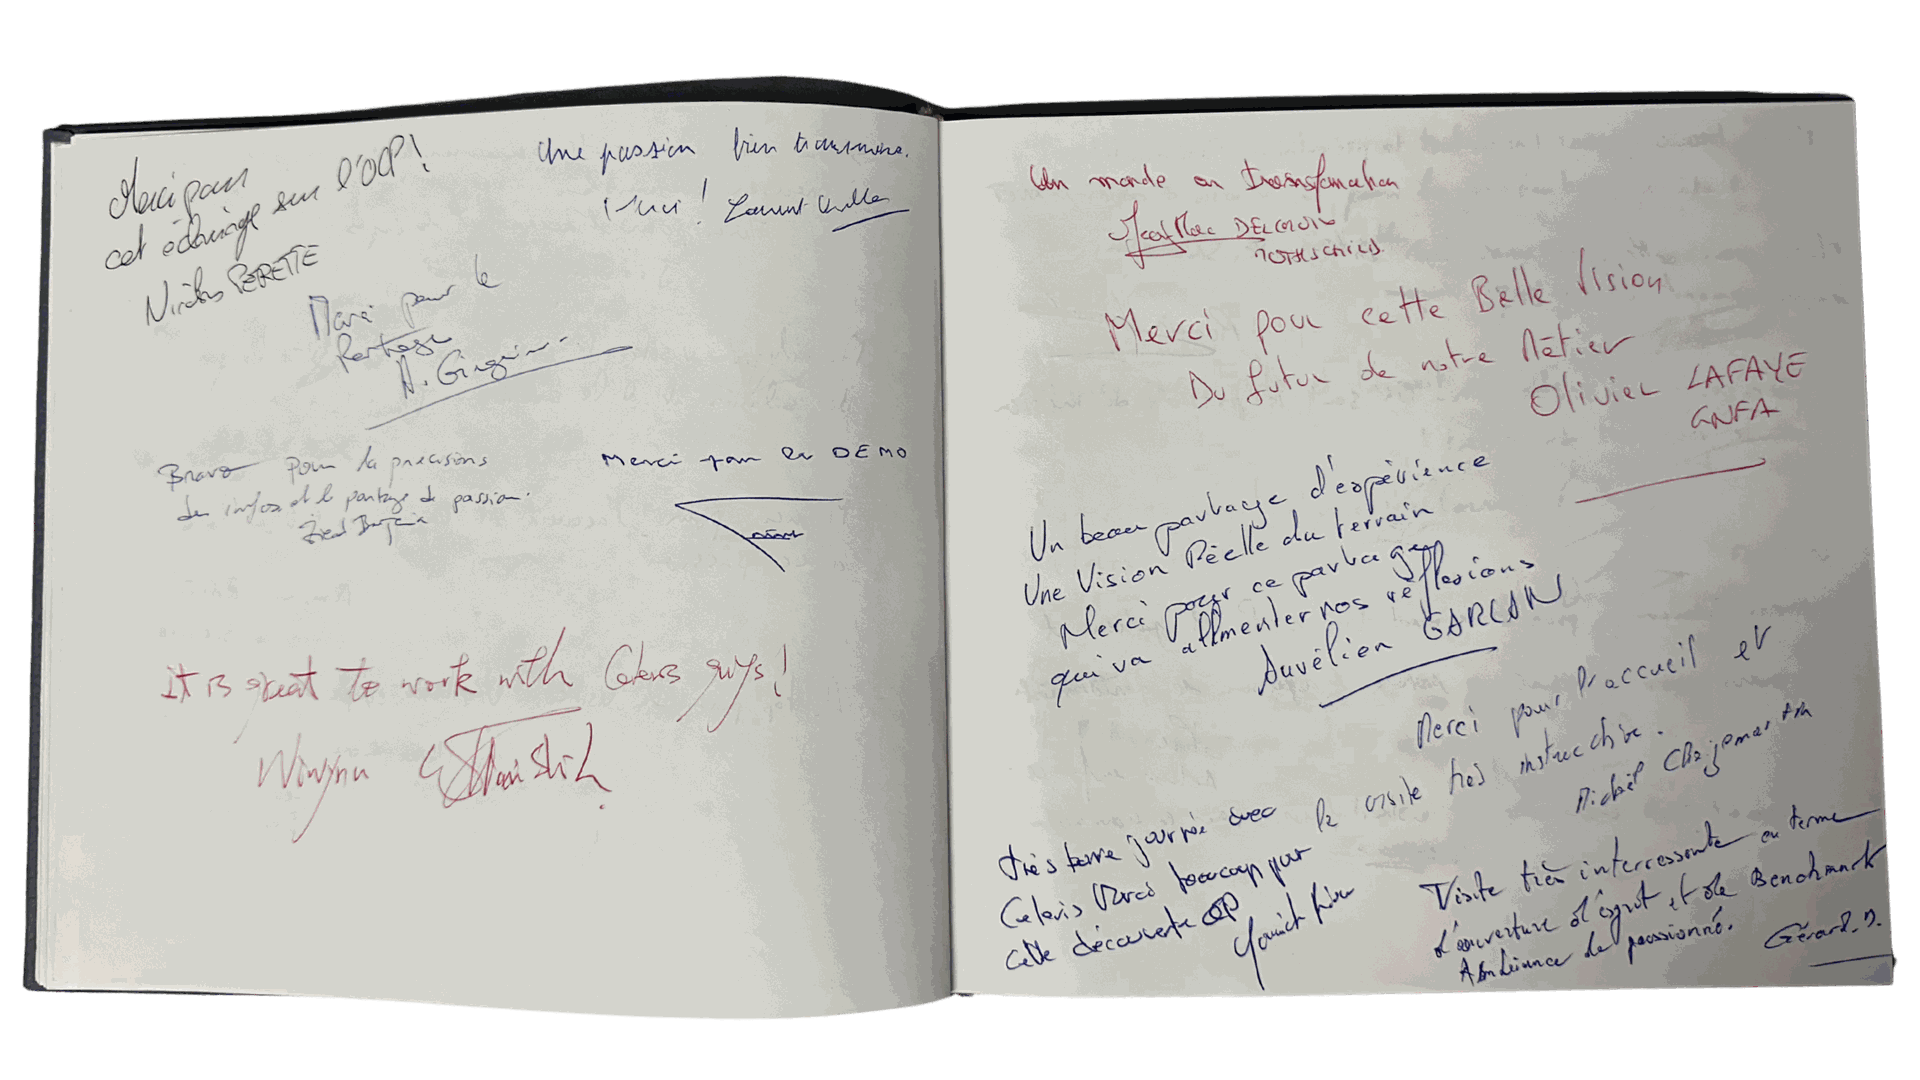 Merci pour
cet éclairage sur l'OCP!
Nicolas PERETTE
Une passion bien transmise.
Merci! Laurent
Merci pour le
Partage
A.
Bravo pour la précisions
des infos et le partage de passion.
Fred
Merci pour la DEMO
It is great to work with Celeris guys!
Un monde en transformation
Jean Marc
ROTHSCHILD
Merci pour cette Belle Vision
Du futur de notre Métier
Olivier LAFAYE
GNFA
Un beau partage d'expérience
Une Vision Réelle du terrain
Merci pour ce partage
qui va allimenter nos réflexions
Aurélien GARCAN
Merci pour l'accueil et
la visite très instructive.
Michel
Très bonne journée avec
Celeris Merci beaucoup pour
cette découverte
Visite très interressante en terme
d'ouverture d'esprit et de Benchmark
Ambiance de passionné.
Gérard. D.